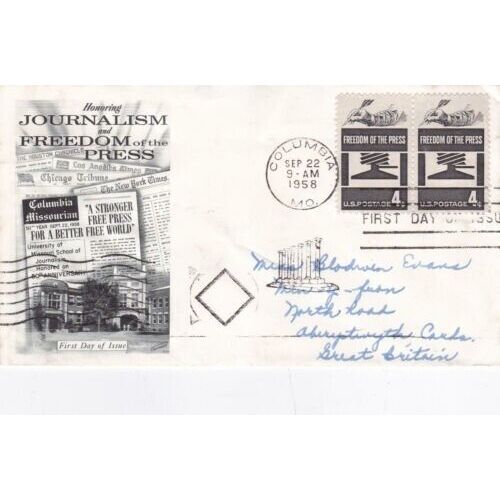 Honoring
JOURNALISM
and
FREEDOM of the
PRESS
THE HOUSTON CHRONICLE
Los Angeles Times
Chicago Tribune
The New York Times
Columbia
Missourian
50TH YEAR SEPT. 22, 1958
"A STRONGER
FREE PRESS
FOR A BETTER FREE WORLD"
University of
Missouri School of
Journalism
Honored on
50TH ANNIVERSARY
First Day of Issue
COLUMBIA
SEP 22
9-AM
1958
MO.
FREEDOM OF THE PRESS
U.S. POSTAGE 4¢
FREEDOM OF THE PRESS
U.S. POSTAGE 4¢
FIRST DAY OF ISSUE
Miss Blodwen Evans
North Road
Aberystwyth Cards.
Great Britain